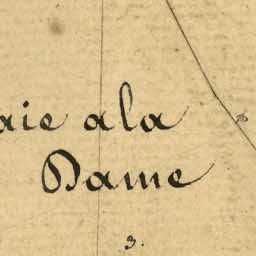 aie a la
Dame
3.